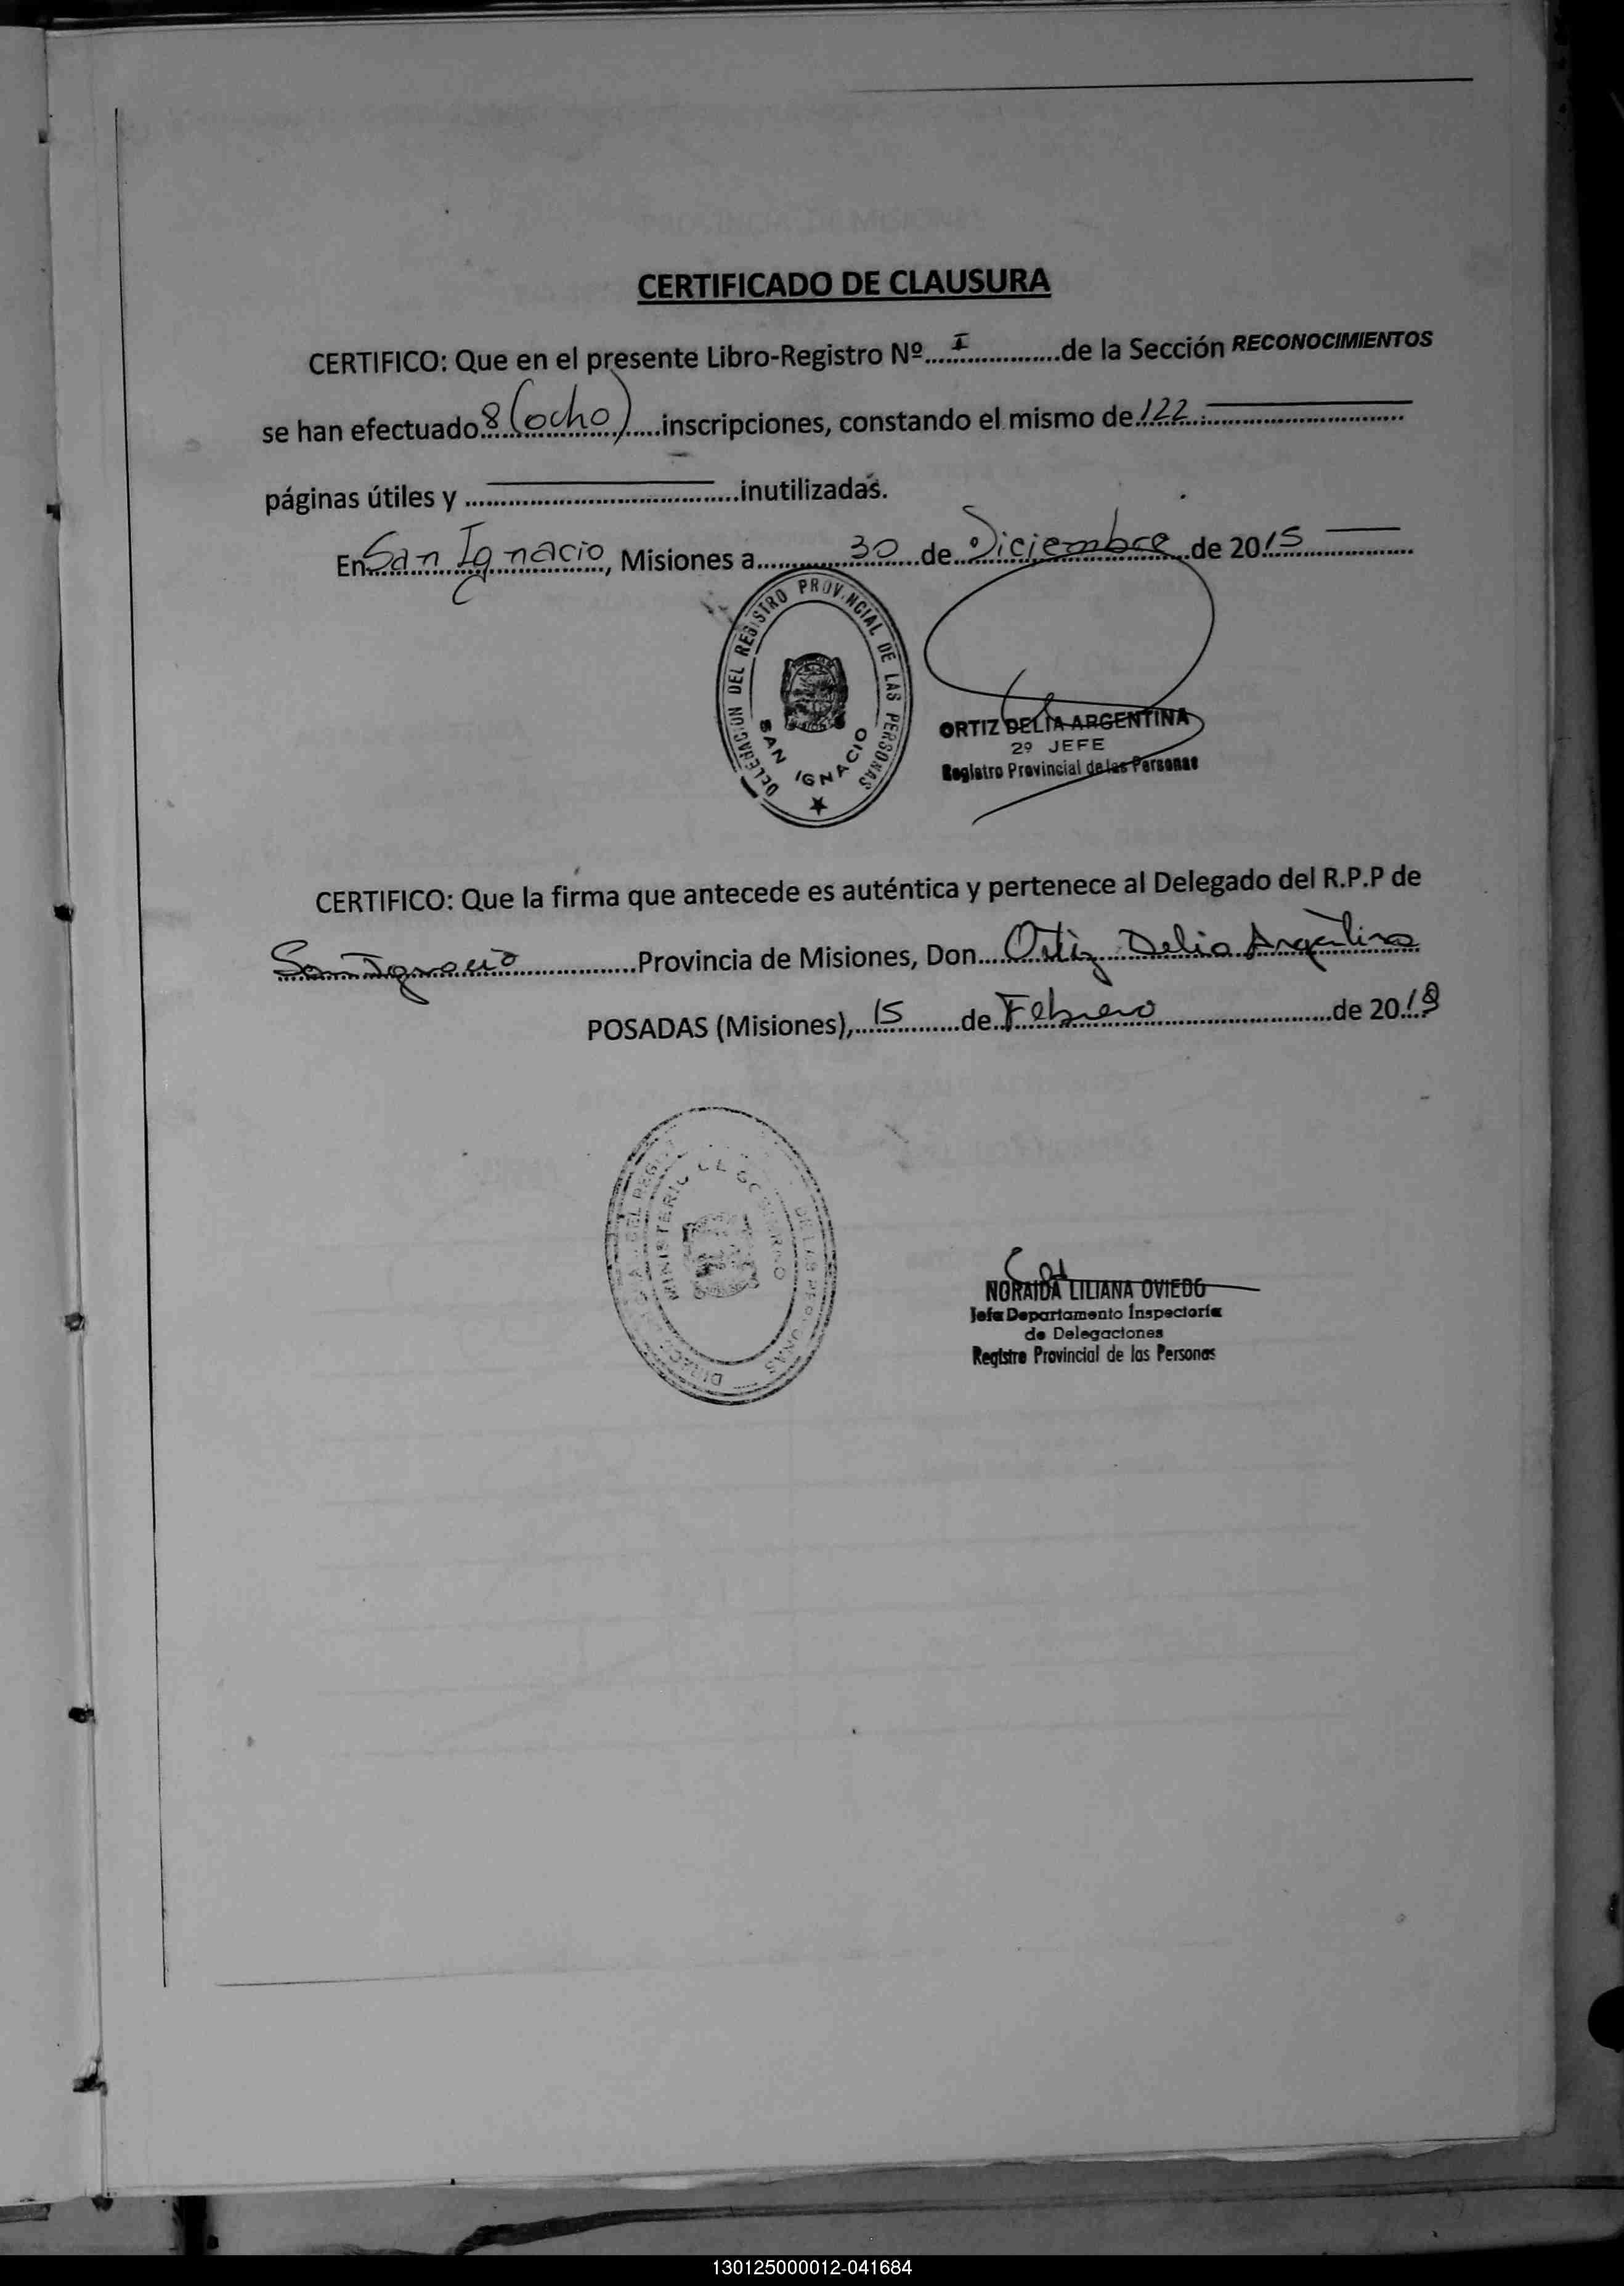 CERTIFICADO DE CLAUSURA
CERTIFICO: Que en el presente Libro-Registro Nº....I....................de la Sección RECONOCIMIENTOS
se han efectuado 8 (ocho)......inscripciones, constando el mismo de 122.:..............................
páginas útiles y ........................................inutilizadas.
En San Ignacio, Misiones a..............30...de...Diciembre...de 2015................
DELEGACION DEL REGISTRO PROVINCIAL DE LAS PERSONAS
SAN IGNACIO
ORTIZ DELIA ARGENTINA
2º JEFE
Registro Provincial de las Personas
CERTIFICO: Que la firma que antecede es auténtica y pertenece al Delegado del R.P.P de
San Ignacio.................Provincia de Misiones, Don....Ortiz Delia Argentina
POSADAS (Misiones),...15.........de..Febrero..........................de 2018
MINISTERIO DE GOBIERNO
DE LAS PERSONAS
NORAIDA LILIANA OVIEDO
Jefa Departamento Inspectoría
de Delegaciones
Registro Provincial de las Personas
130125000012-041684